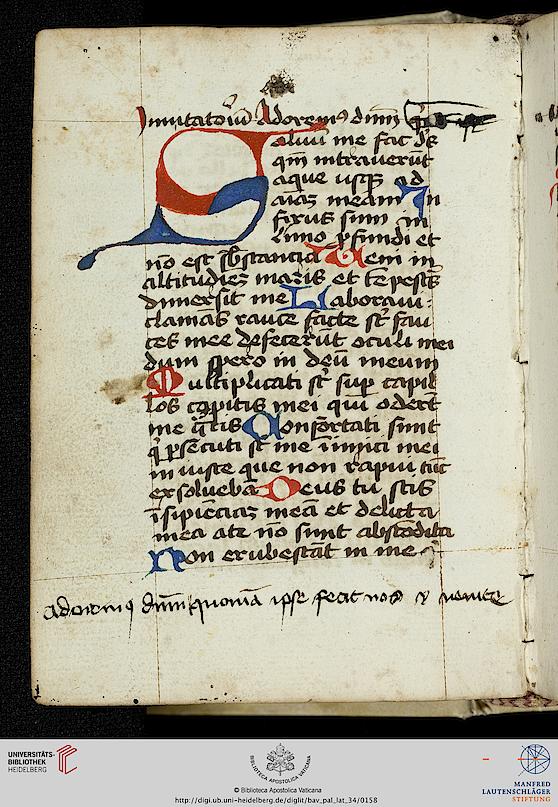 Inuitatoriu Adorem9 dnm
Saluu me fac ds
qm intrauerut
aque usq3 ad
aiaz meam In
fixus sum in
limo pfundi et
no est sbstancia Ueni in
altitudiez maris et tepestas
dimersit me Laboraui
clamas rauce facte st fau
ces mee defecerut oculi mei
dum spero in deu meum
Multiplicati st sup capil
los capitis mei qui oderut
me gratis Confortati sunt
q psecuti st me inimici mei
iniuste que non rapui tuc
exsolueba Deus tu scis
isipienciaz mea et delicta
mea a te no sunt abscondita
Non erubescat in me
Adorem9 dnm quonia ipse fecit nos & uenite
UNIVERSITÄTS-
BIBLIOTHEK
HEIDELBERG
BIBLIOTHECA APOSTOLICA VATICANA
© Biblioteca Apostolica Vaticana
http://digi.ub.uni-heidelberg.de/diglit/bav_pal_lat_34/0158
MANFRED
LAUTENSCHLÄGER
STIFTUNG